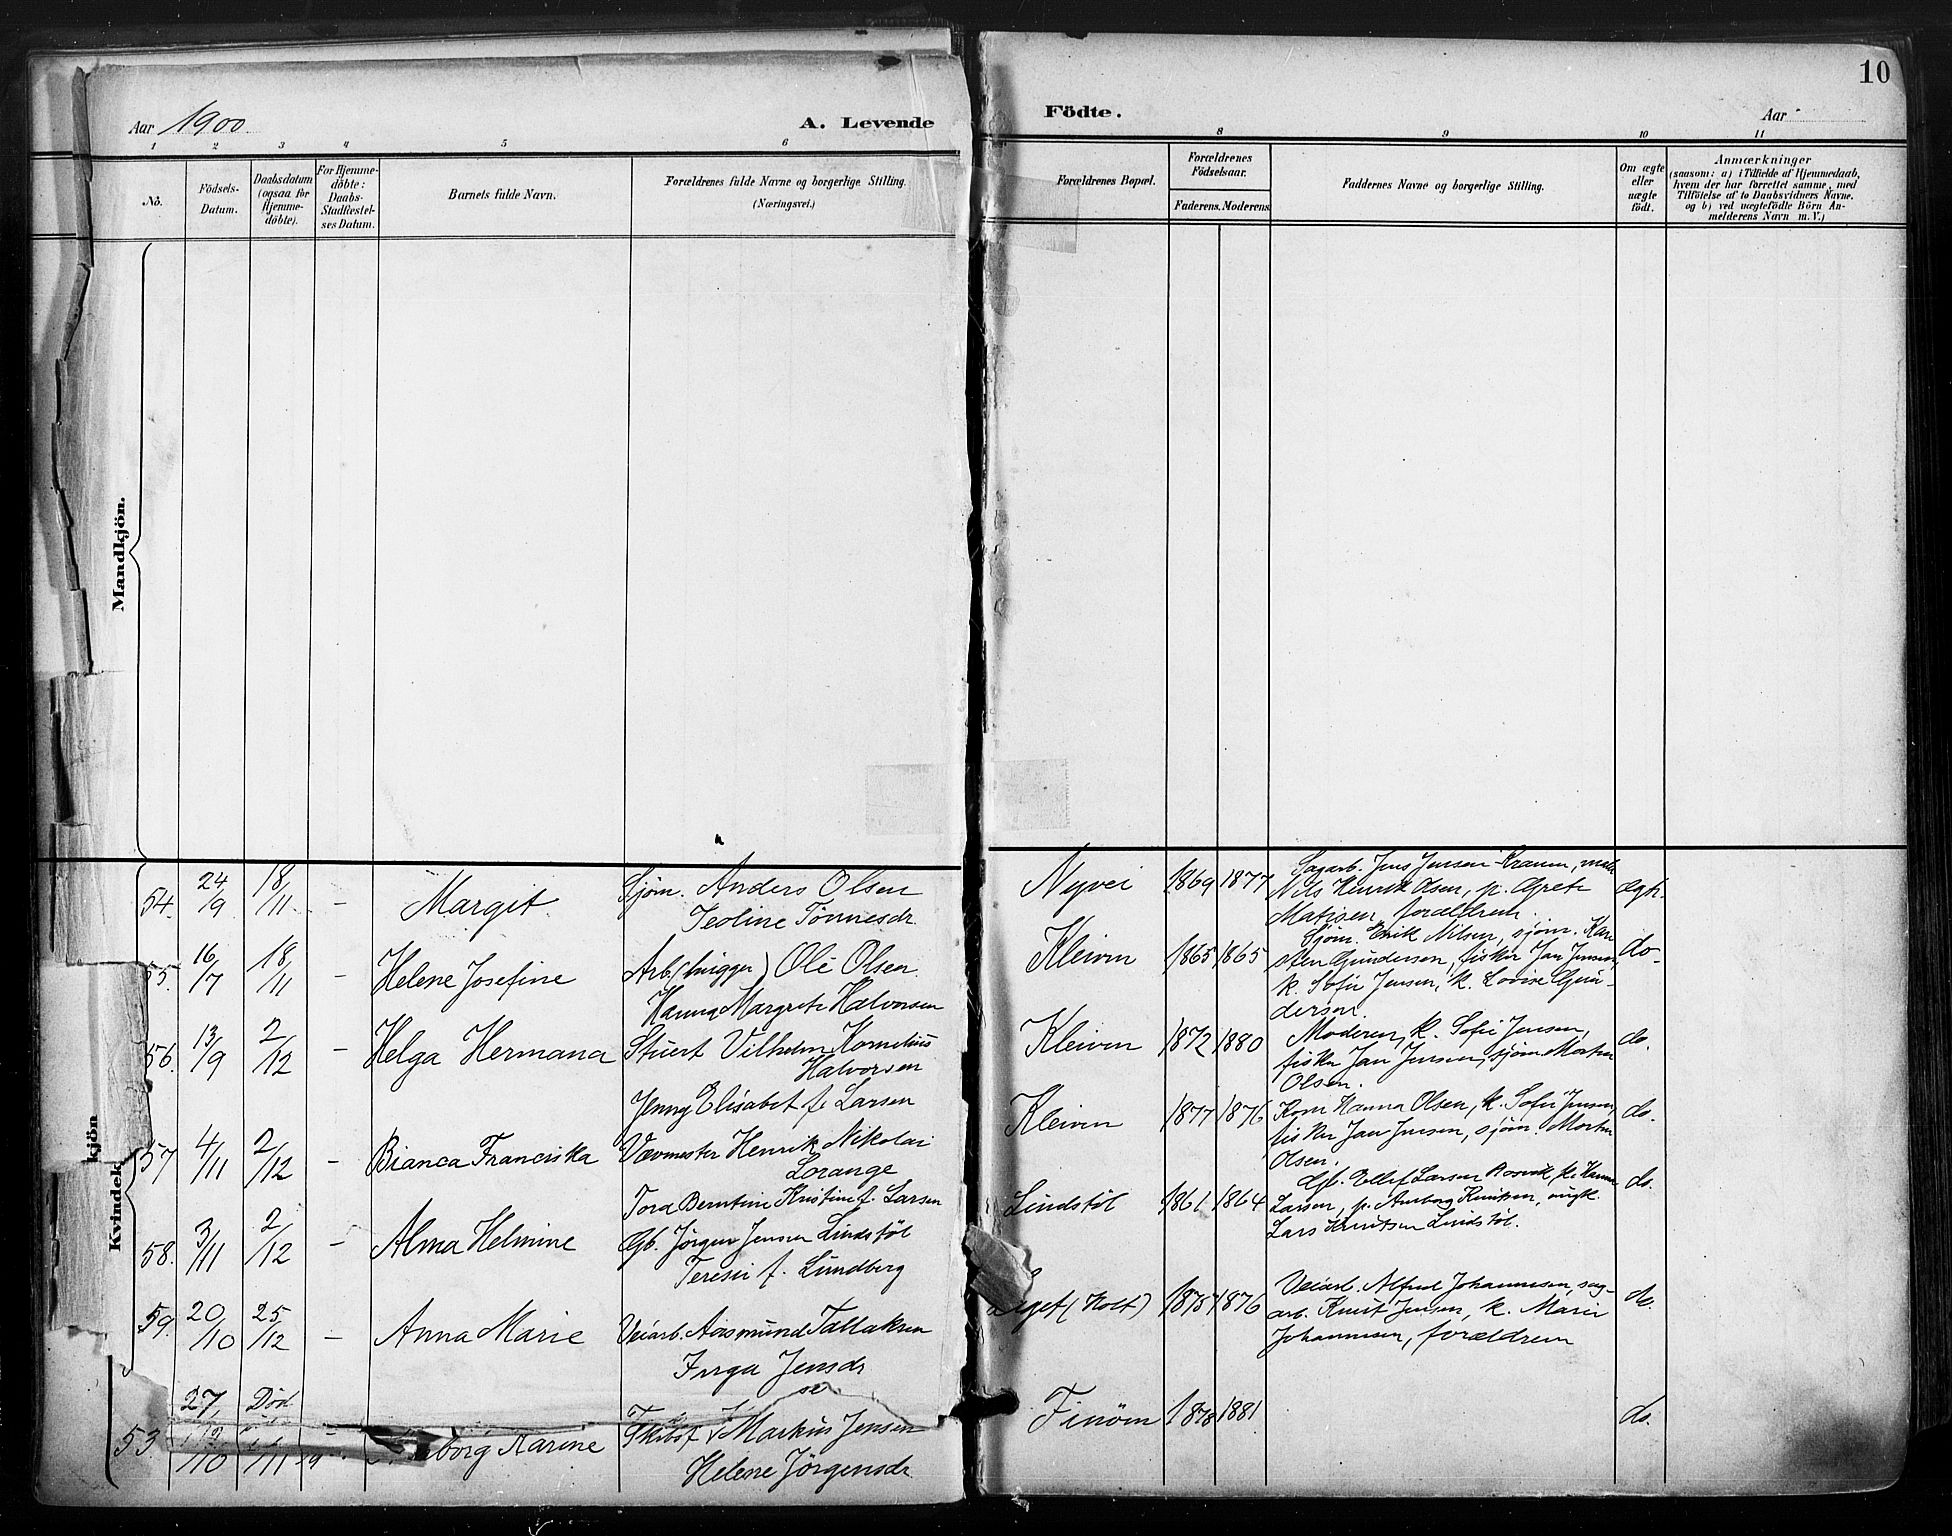 10
Aar 1900. A. Levende Födte. Aar
1 2 3 4 5 6 8 9 10 11
No. Födsels-Datum. Daabsdatum (ogsaa for Hjemmedöbte). For Hjemmedöbte: Daabs-Stadfæstelses Datum. Barnets fulde Navn. Forældrenes fulde Navne og borgerlige Stilling. (Næringsvei.) Forældrenes Bopæl. Forældrenes Födselsaar. Faderens. Moderens. Faddernes Navne og borgerlige Stilling. Om ægte eller uægte födt. Anmærkninger
(saasom: a) i Tilfælde af Hjemmedaab, hvem der har forrettet samme, med Tilföielse af to Daabsvidners Navne, og b) ved uægtefödte Börn Anmelderens Navn m. V.)
Mandkjön.
Kvindekjön
54. 24/9 18/11 – Margit Sjøm. Anders Olsen Nyvei 1869 1877 Sagarb. Jens Jensen
Teoline Tønnesdr. Nils Henrik Olsen, p. Grete
Matisen, forældrene. ægte.
55. 16/7 18/11 – Helene Josefine Arb. (brigger) Ole Olsen Kleiven 1865 1865 Sjøm. Erik Nilsen, sjøm. Kar
Hanna Margrete Halvorsen sten Gundersen, fisker Jan Jensen, do.
k. Sofie Jensen, k. Lovise Gun-
dersen.
56. 13/9 2/12 – Helga Hermana Stuert Vilhelm Kornelius Kleiven 1872 1880 Moderen, k. Sofie Jensen, do.
Halvorsen fisker Jan Jensen, sjøm Morten
Jenny Elisabet f. Larsen Olsen.
57 4/11 2/12 – Bianca Franciska Vævmester Henrik Nikolai Kleiven 1877 1876 Kone Hanna Olsen, k. Sofie Jensen, do.
Lorange fisker Jan Jensen, sjøm. Morten
Tora Berntine Kristine f. Larsen Olsen.
58. 3/11 2/12 – Alma Helmine Gb. Jörgen Jensen Lindstöl Lindstöl 1861 1864 Gb. Ellef Larsen
Teresie f. Lundberg Larsen, p. Amborg Knutsen, ungk. do.
Lars Knutsen Lindstöl.
59. 20/10 25/12 – Anna Marie Veiarb. Aasmund Tallaksen (Holt) 1876 Veiarb. Alfred Johannesen, sag
Inga Jensdr arb. Knut Jensen, k. Marie do.
Johannesen, forældrene
53 27/10 Död borg Karine Markus Jensen 1878 1881 do.
Helene Jörgensdr.